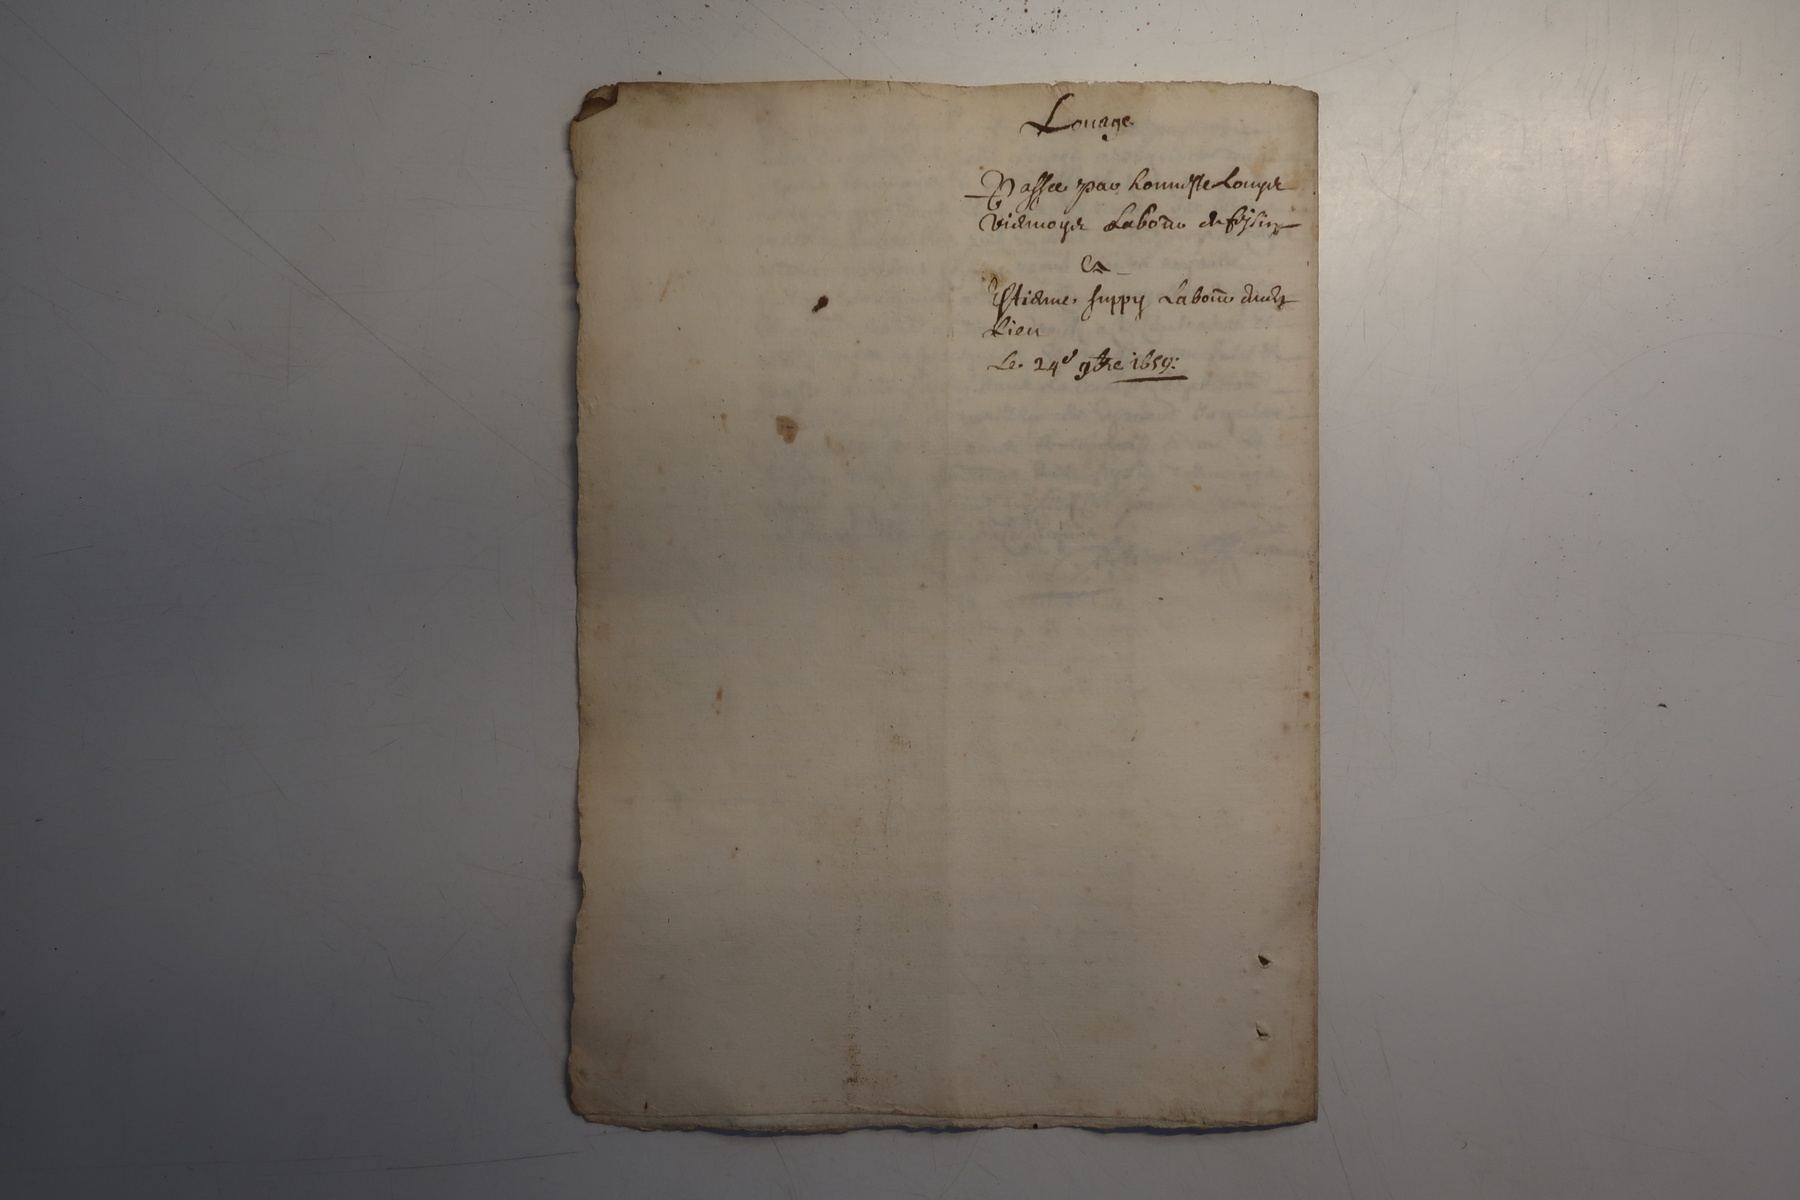 Louage
Passée par honneste Louys
Viennoys Labour de
A
Estienne Suppy Labour dud
Lieu
Le 24e 9bre 1659: